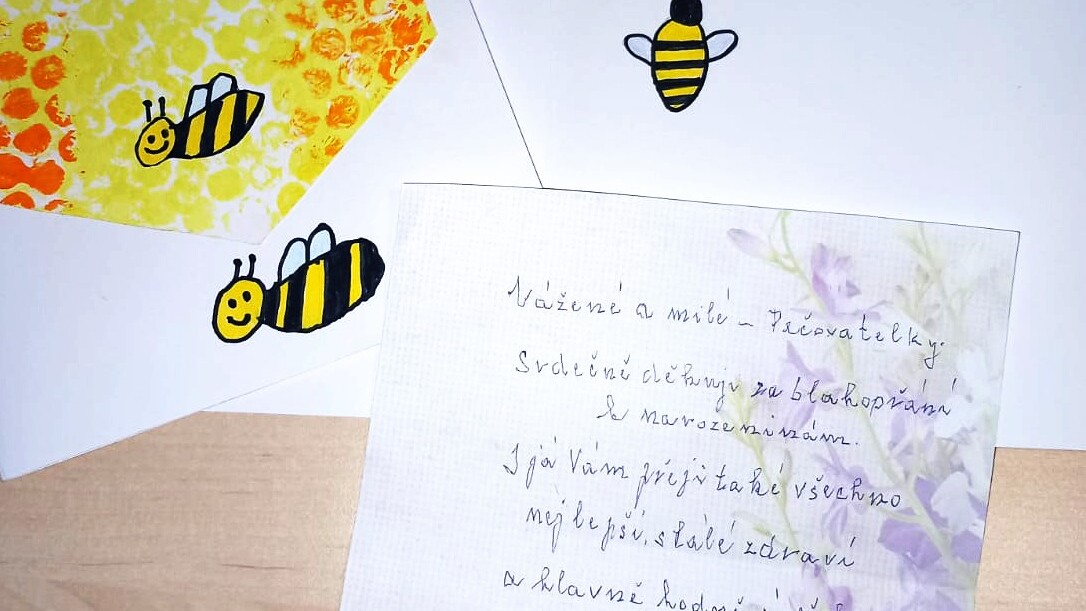 Vážené a milé - Pečovatelky.
Srdečně děkuji za blahopřání
k narozeninám.
I já Vám přeji také všechno
nejlepší, stálé zdraví
a hlavně hodně